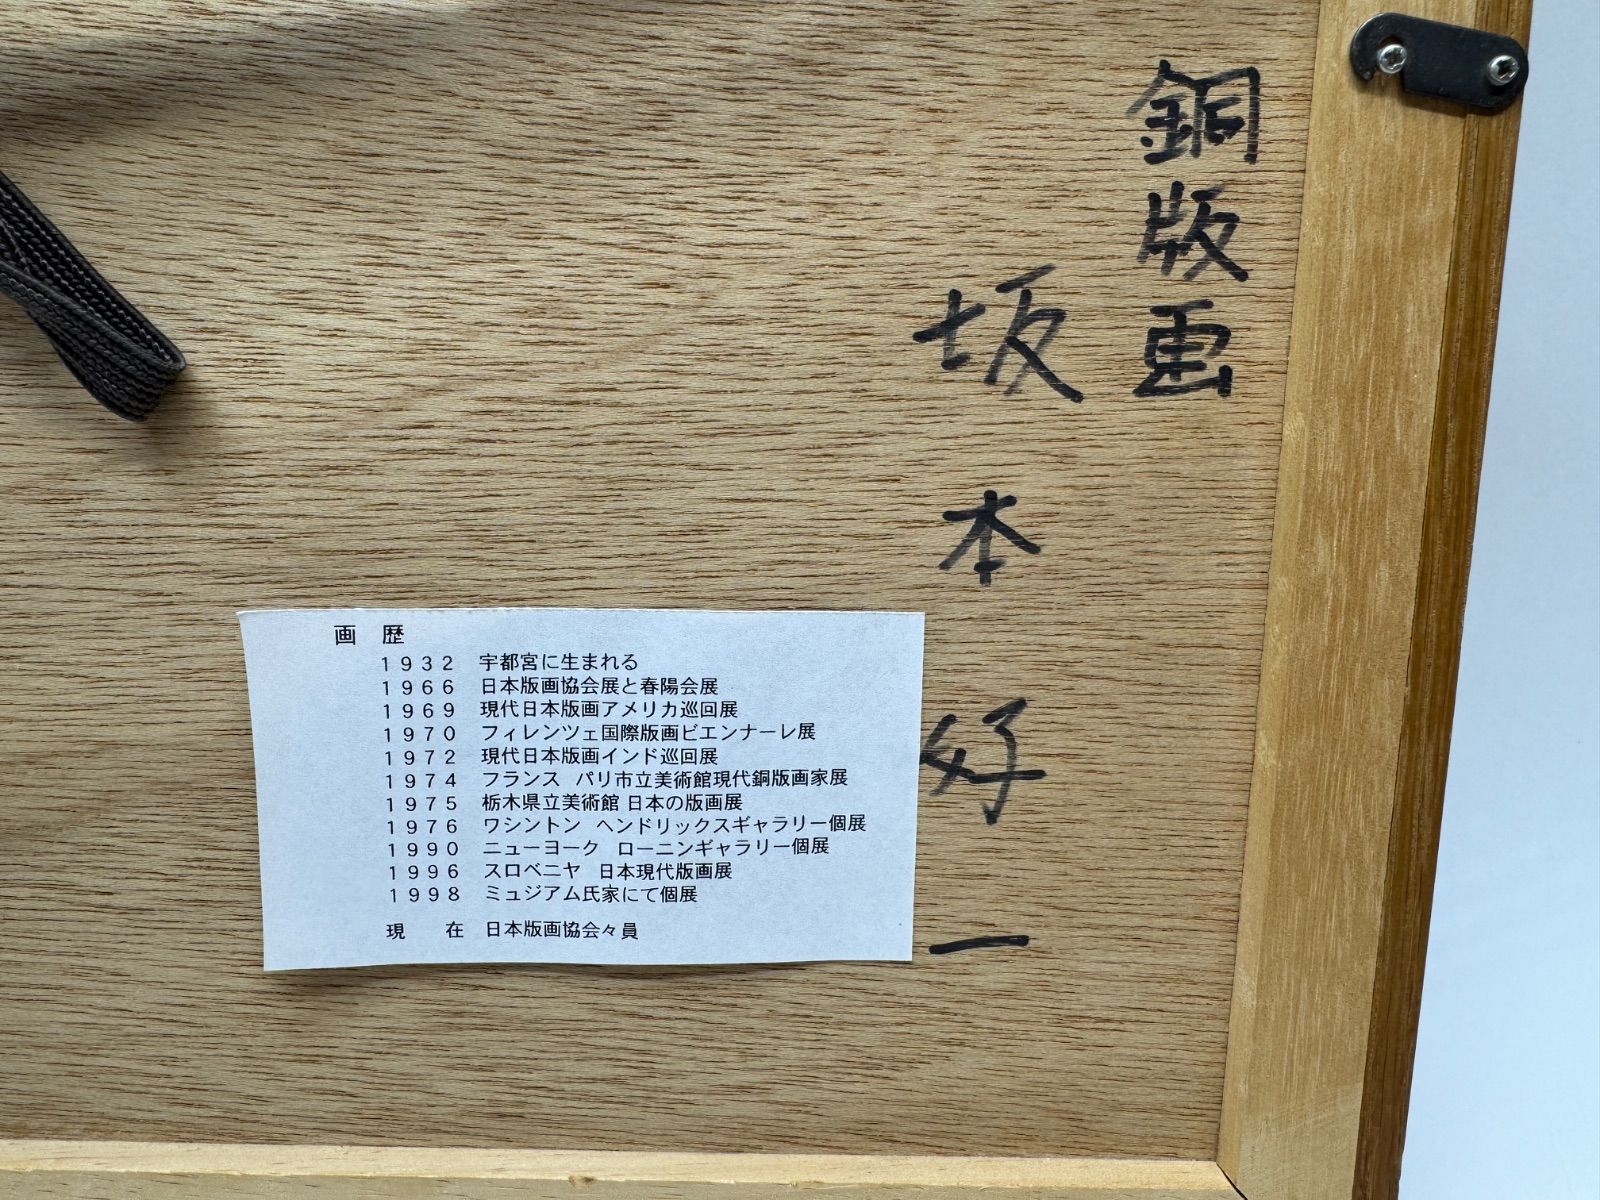 銅版画
坂本好一
画 歴
1932 宇都宮に生まれる
1966 日本版画協会展と春陽会展
1969 現代日本版画アメリカ巡回展
1970 フィレンツェ国際版画ビエンナーレ展
1972 現代日本版画インド巡回展
1974 フランス パリ市立美術館現代銅版画家展
1975 栃木県立美術館 日本の版画展
1976 ワシントン ヘンドリックスギャラリー個展
1990 ニューヨーク ローニンギャラリー個展
1996 スロベニヤ 日本現代版画展
1998 ミュジアム氏家にて個展
現 在 日本版画協会々員